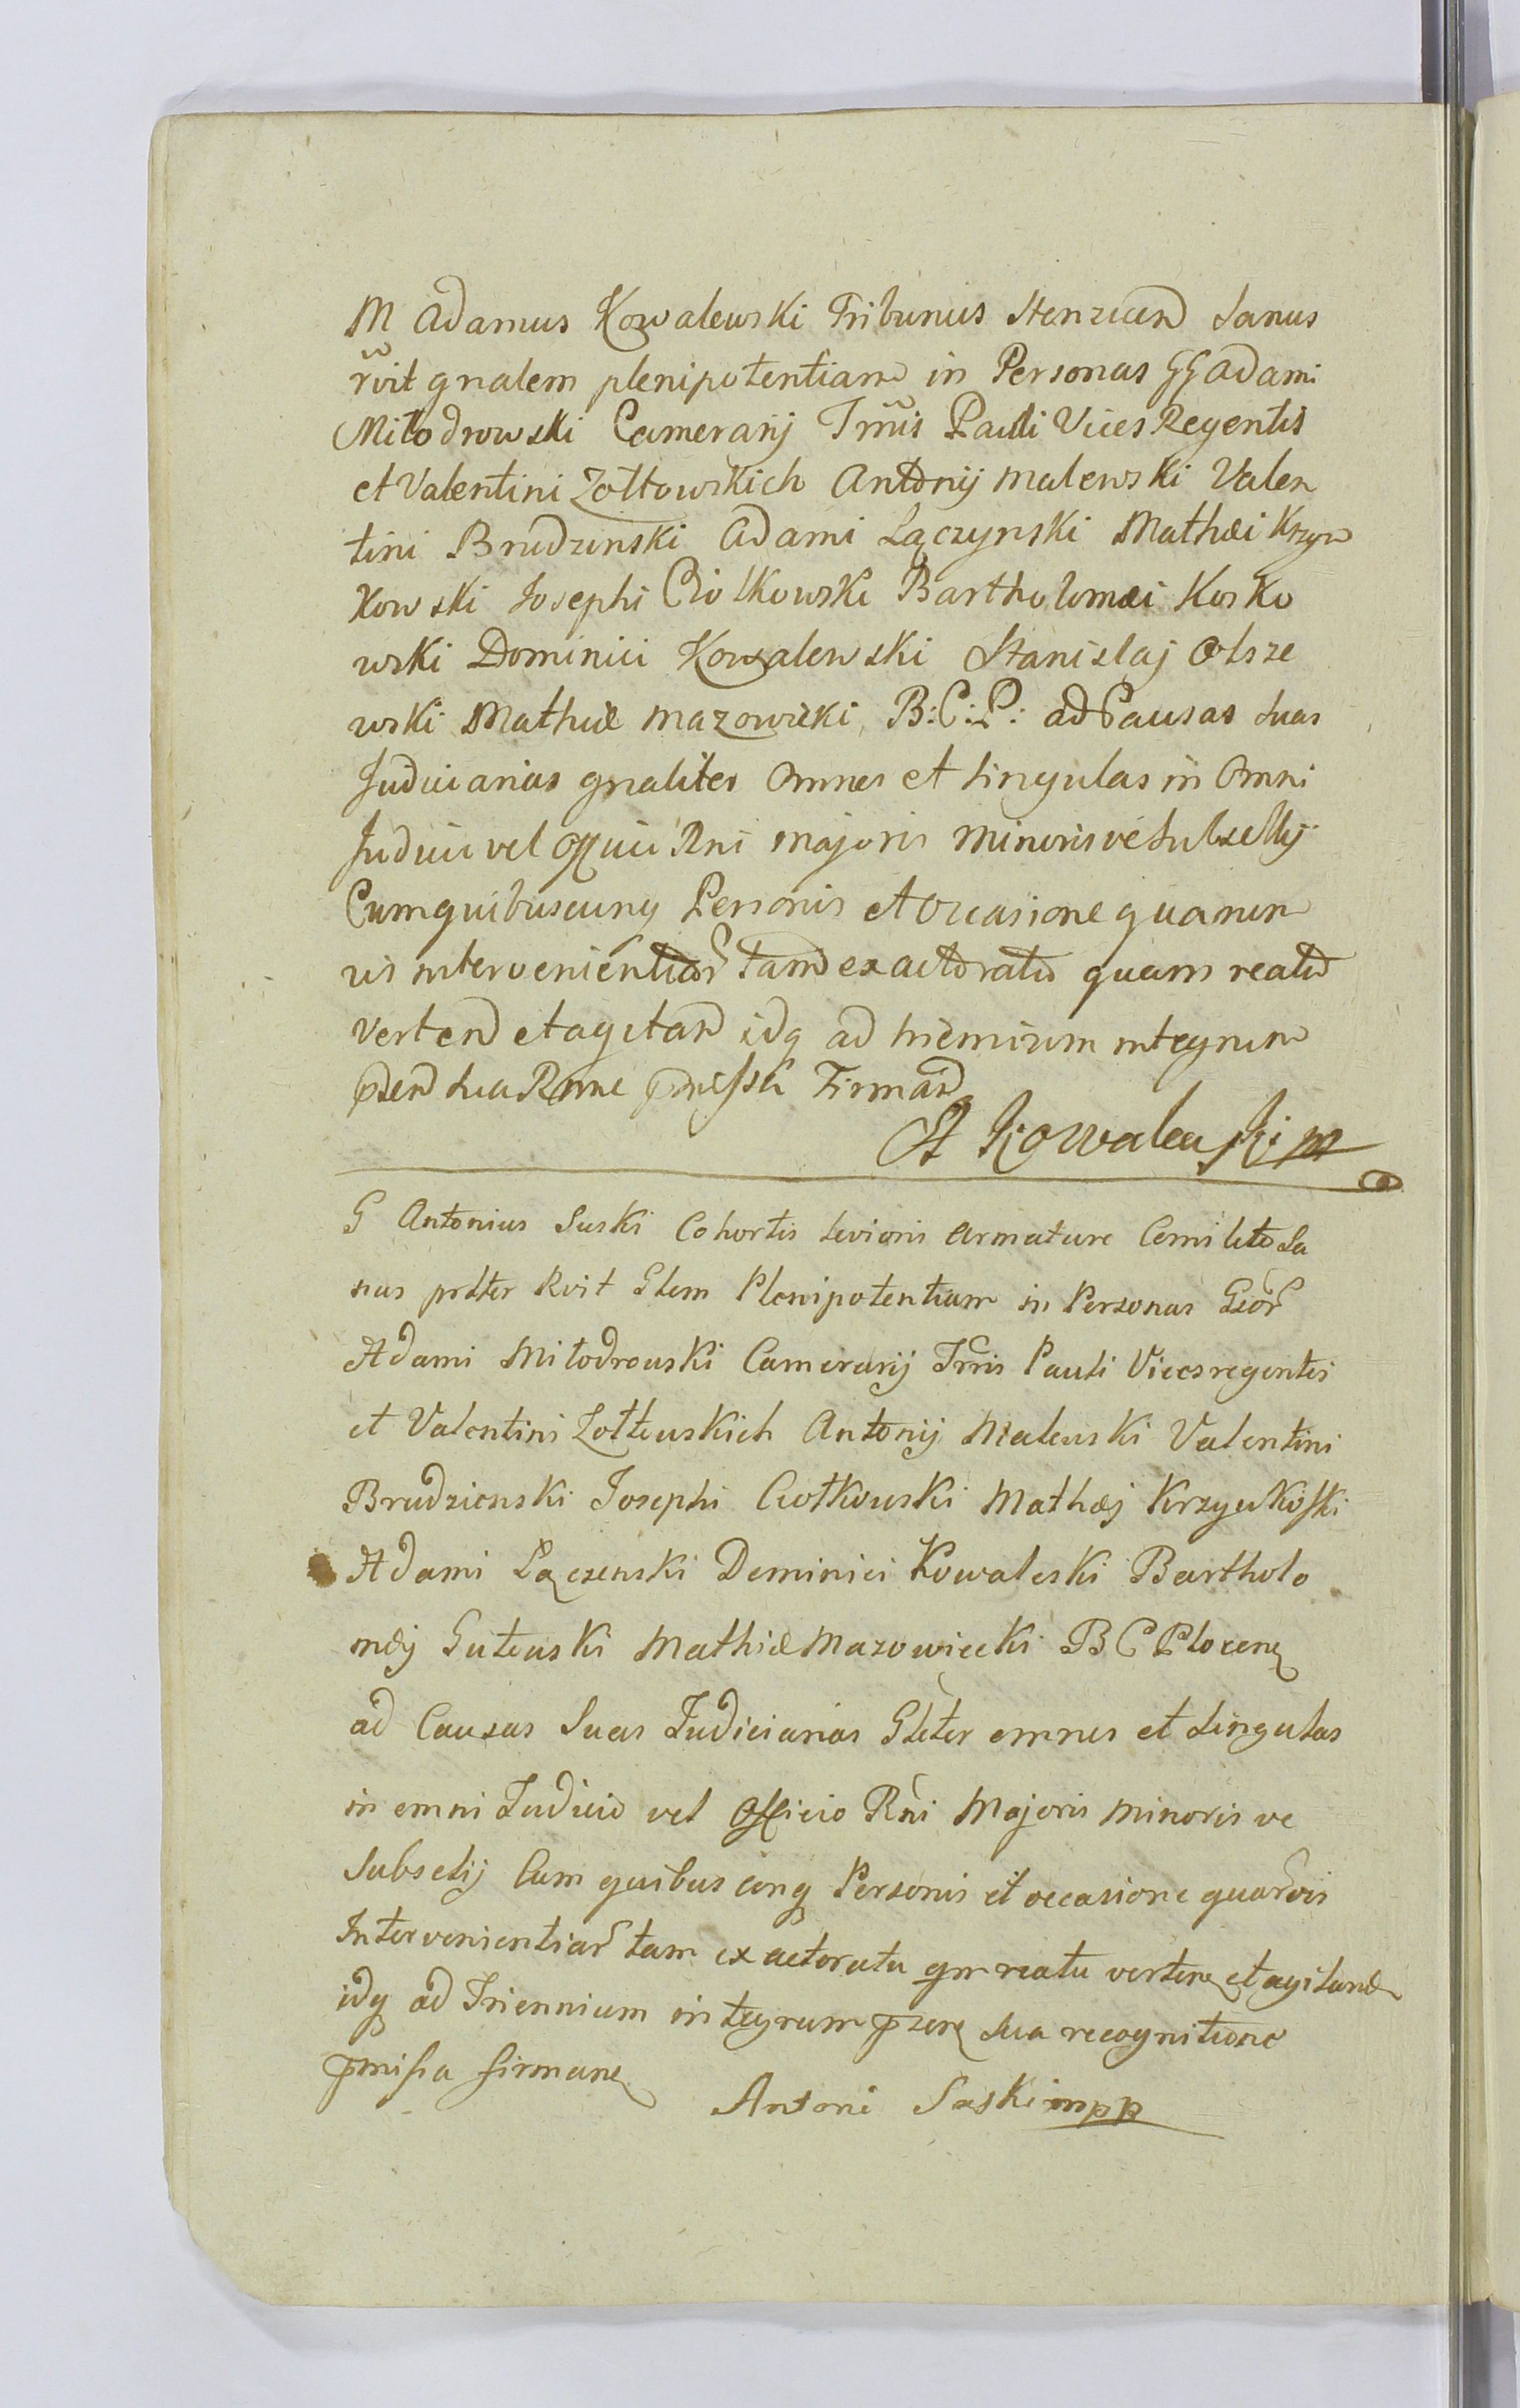 M Adamus Kowalewski Tribunus Stenzicen Sanus
rvit gnalem plenipotentiam in Personas GG Adami
Miłodrowski Camerarij Trrus Pauli Vices Regentis
et Valentini Zołtowskich Antonij Malewski Valen
tini Brudzinski Adami Łączynski Mathæi Krzyn
kowski Josephi Ciołkowski Bartholomæi Kosko
wski Dominici Kowalewski Stanislaj Olsze
wski Mathiæ Mazowiecki B: C: P: ad Causas suas
Judiciarias gnaliter Omnes et singulas in Omni
Judicio vel Officio Rni majoris minorisve subsellij
Cum quibuscunq Personis et occasione quarum
vis intervenientiar tam ex actoratu quam reatu
verten et agitan idq ad triennium integrum
pzen sua Rnne pmissa Firman
A Kowalewski m
G Antonius Suski Cohortis Levioris Armature Comilito Sa
nus prtter Rvit Glem Plenipotentiam in Personas Gsor
Adami Miłodrouski Camerarij Trris Pauli Viccsregentis
et Valentini Zołtouskich Antonij Maleuski Valentini
Brudzienski Josephi Ciołkouski Mathæj Krzynkoski
Adami Łączenski Dominici Kowaleski Bartholo
mæj Guteuski Mathiæ Mazowiecki B C Plocen
ad Causas Suas Judiciarias Glter omnes et singulas
in omni Judicio vel Officio Rni Majoris minoris ve
Subselij Cum quibus cunq Personis et occasione quarvis
Intervenientiar tam ex actoratu qm reatu verten et agitand
idq ad Triennium integrum pzen sua recognitione
pmissa firman
Antoni Suski mpp